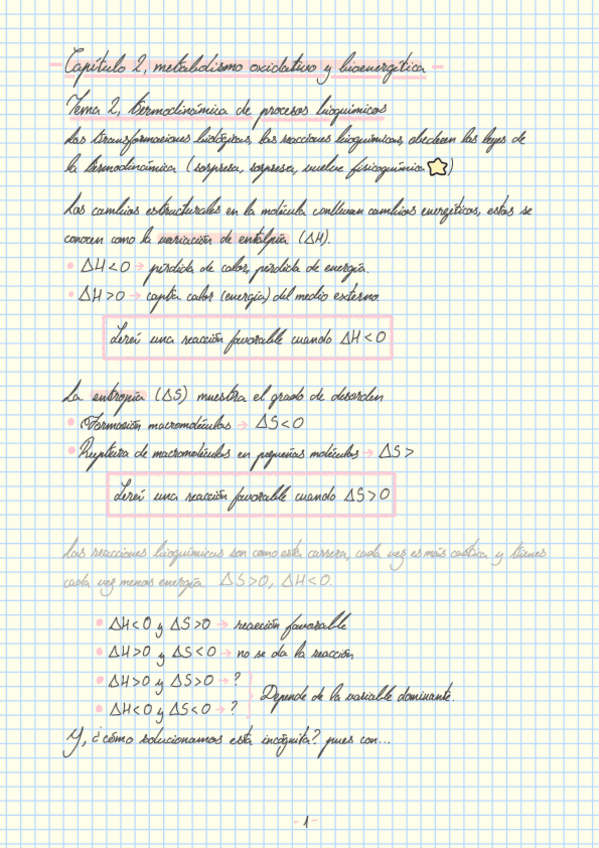 - Capítulo 2, metabolismo oxidativo y bioenergética -
Tema 2, termodinámica de procesos bioquímicos
Las transformaciones biológicas, las reacciones bioquímicas, obedecen las leyes de
la termodinámica (sorpresa, sorpresa, vuelve fisicoquímica ⭐)
Los cambios estructurales en la molécula conllevan cambios energéticos, estos se
conocen como la variación de entalpía (ΔH).
• ΔH<0 → pérdida de calor, pérdida de energía.
• ΔH>0 → capta calor (energía) del medio externo.
Será una reacción favorable cuando ΔH<0
La entropía (ΔS) muestra el grado de desorden
• Formación macromoléculas → ΔS<0
• Ruptura de macromoléculas en pequeñas moléculas → ΔS>
Será una reacción favorable cuando ΔS>0
Las reacciones bioquímicas son como esta carrera, cada vez es más caótica y tienes
cada vez menos energía. ΔS>0, ΔH<0.
• ΔH<0 y ΔS>0 → reacción favorable
• ΔH>0 y ΔS<0 → no se da la reacción
• ΔH>0 y ΔS>0 → ?
• ΔH<0 y ΔS<0 → ?
Depende de la variable dominante.
Y, ¿cómo solucionamos esta incógnita? pues con...
- 1 -